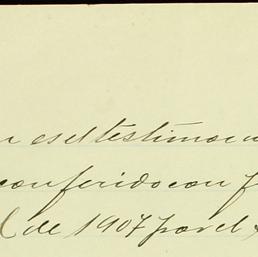 es el testimon
conferido con f
l de 1907 por el